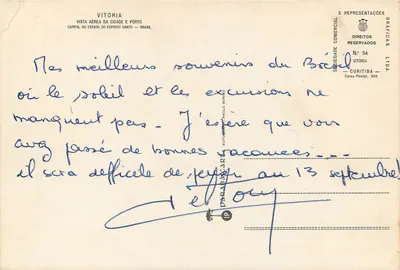 VITÓRIA
VISTA AÉREA DA CIDADE E PORTO
CAPITAL DO ESTADO DO ESPÍRITO SANTO — BRASIL
SOCIEDADE COMERCIAL
E REPRESENTAÇÕES
GRÁFICAS LTDA
DIREITOS
RESERVADOS
Nº 54
VITÓRIA
— CURITIBA —
Caixa Postal,
Mes meilleurs souvenirs du Brésil
où le soleil et les excursions ne
manquent pas. J'espère que vous
avez passé de bonnes vacances...
il sera difficile de au 13 septembre!
PARANACART